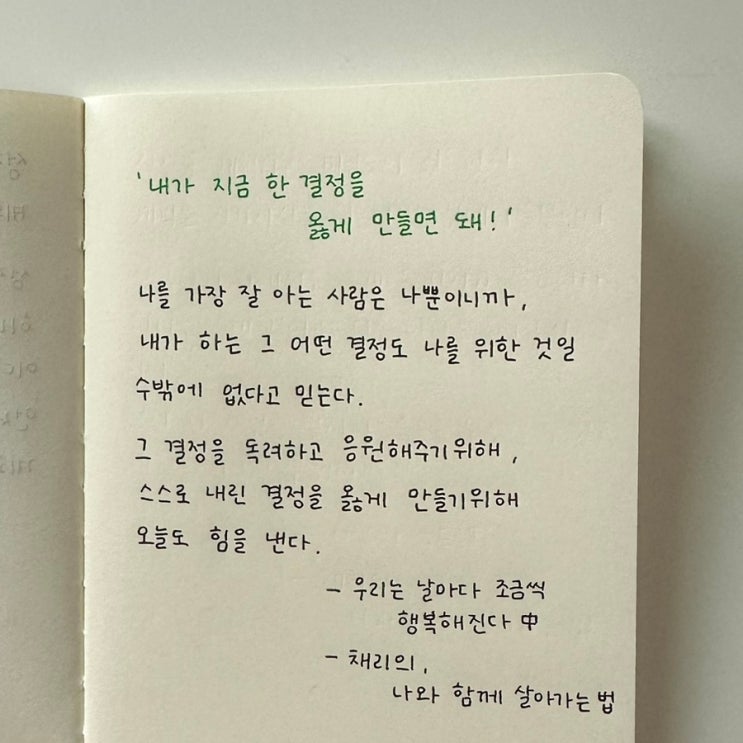 '내가 지금 한 결정을
옳게 만들면 돼!'
나를 가장 잘 아는 사람은 나뿐이니까,
내가 하는 그 어떤 결정도 나를 위한 것일
수밖에 없다고 믿는다.
그 결정을 독려하고 응원해주기위해,
스스로 내린 결정을 옳게 만들기위해
오늘도 힘을 낸다.
- 우리는 날마다 조금씩
행복해진다 中
- 채리의,
나와 함께 살아가는 법